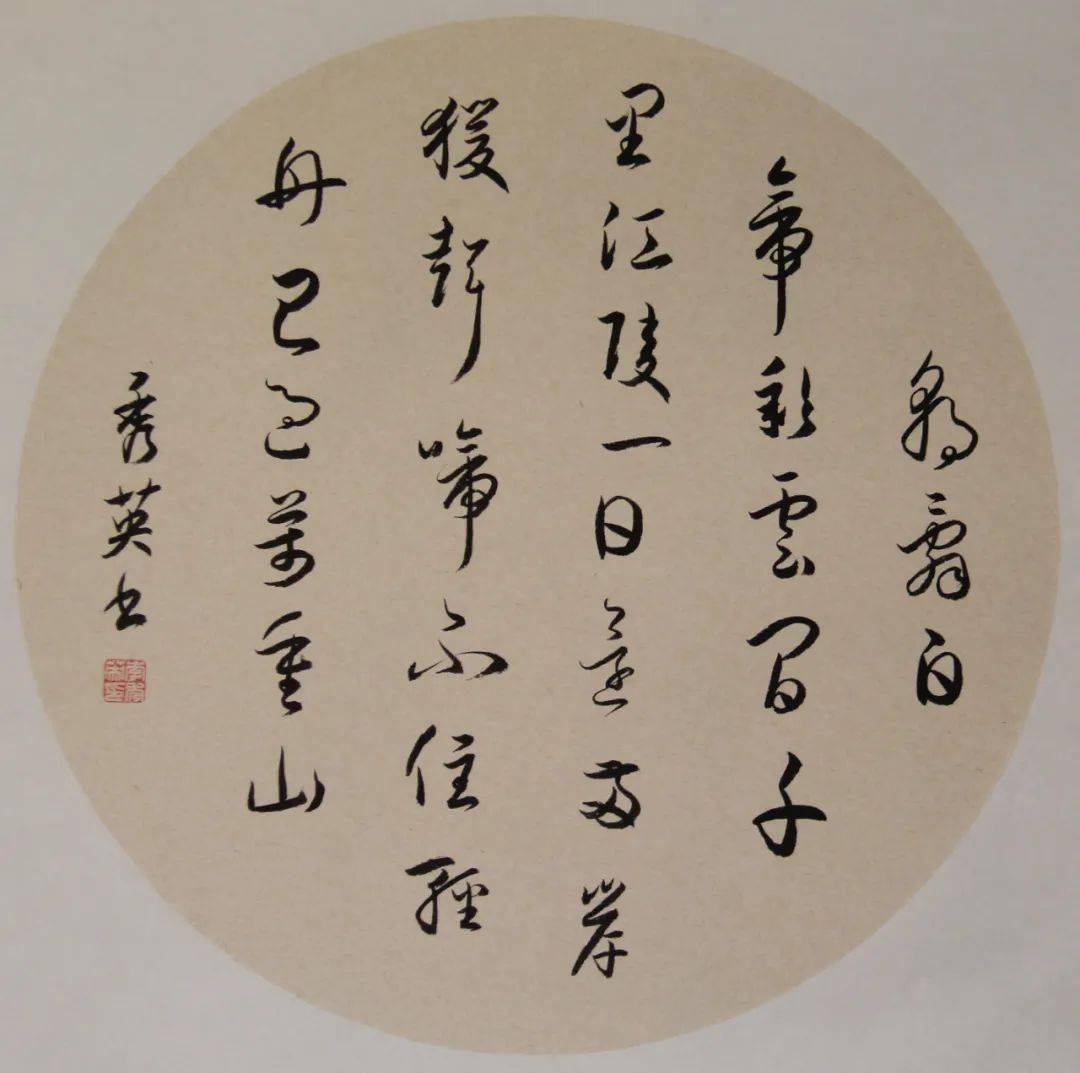 朝辭白
帝彩雲間千
里江陵一日還兩岸
猨聲啼不住輕
舟已過萬重山
秀英书